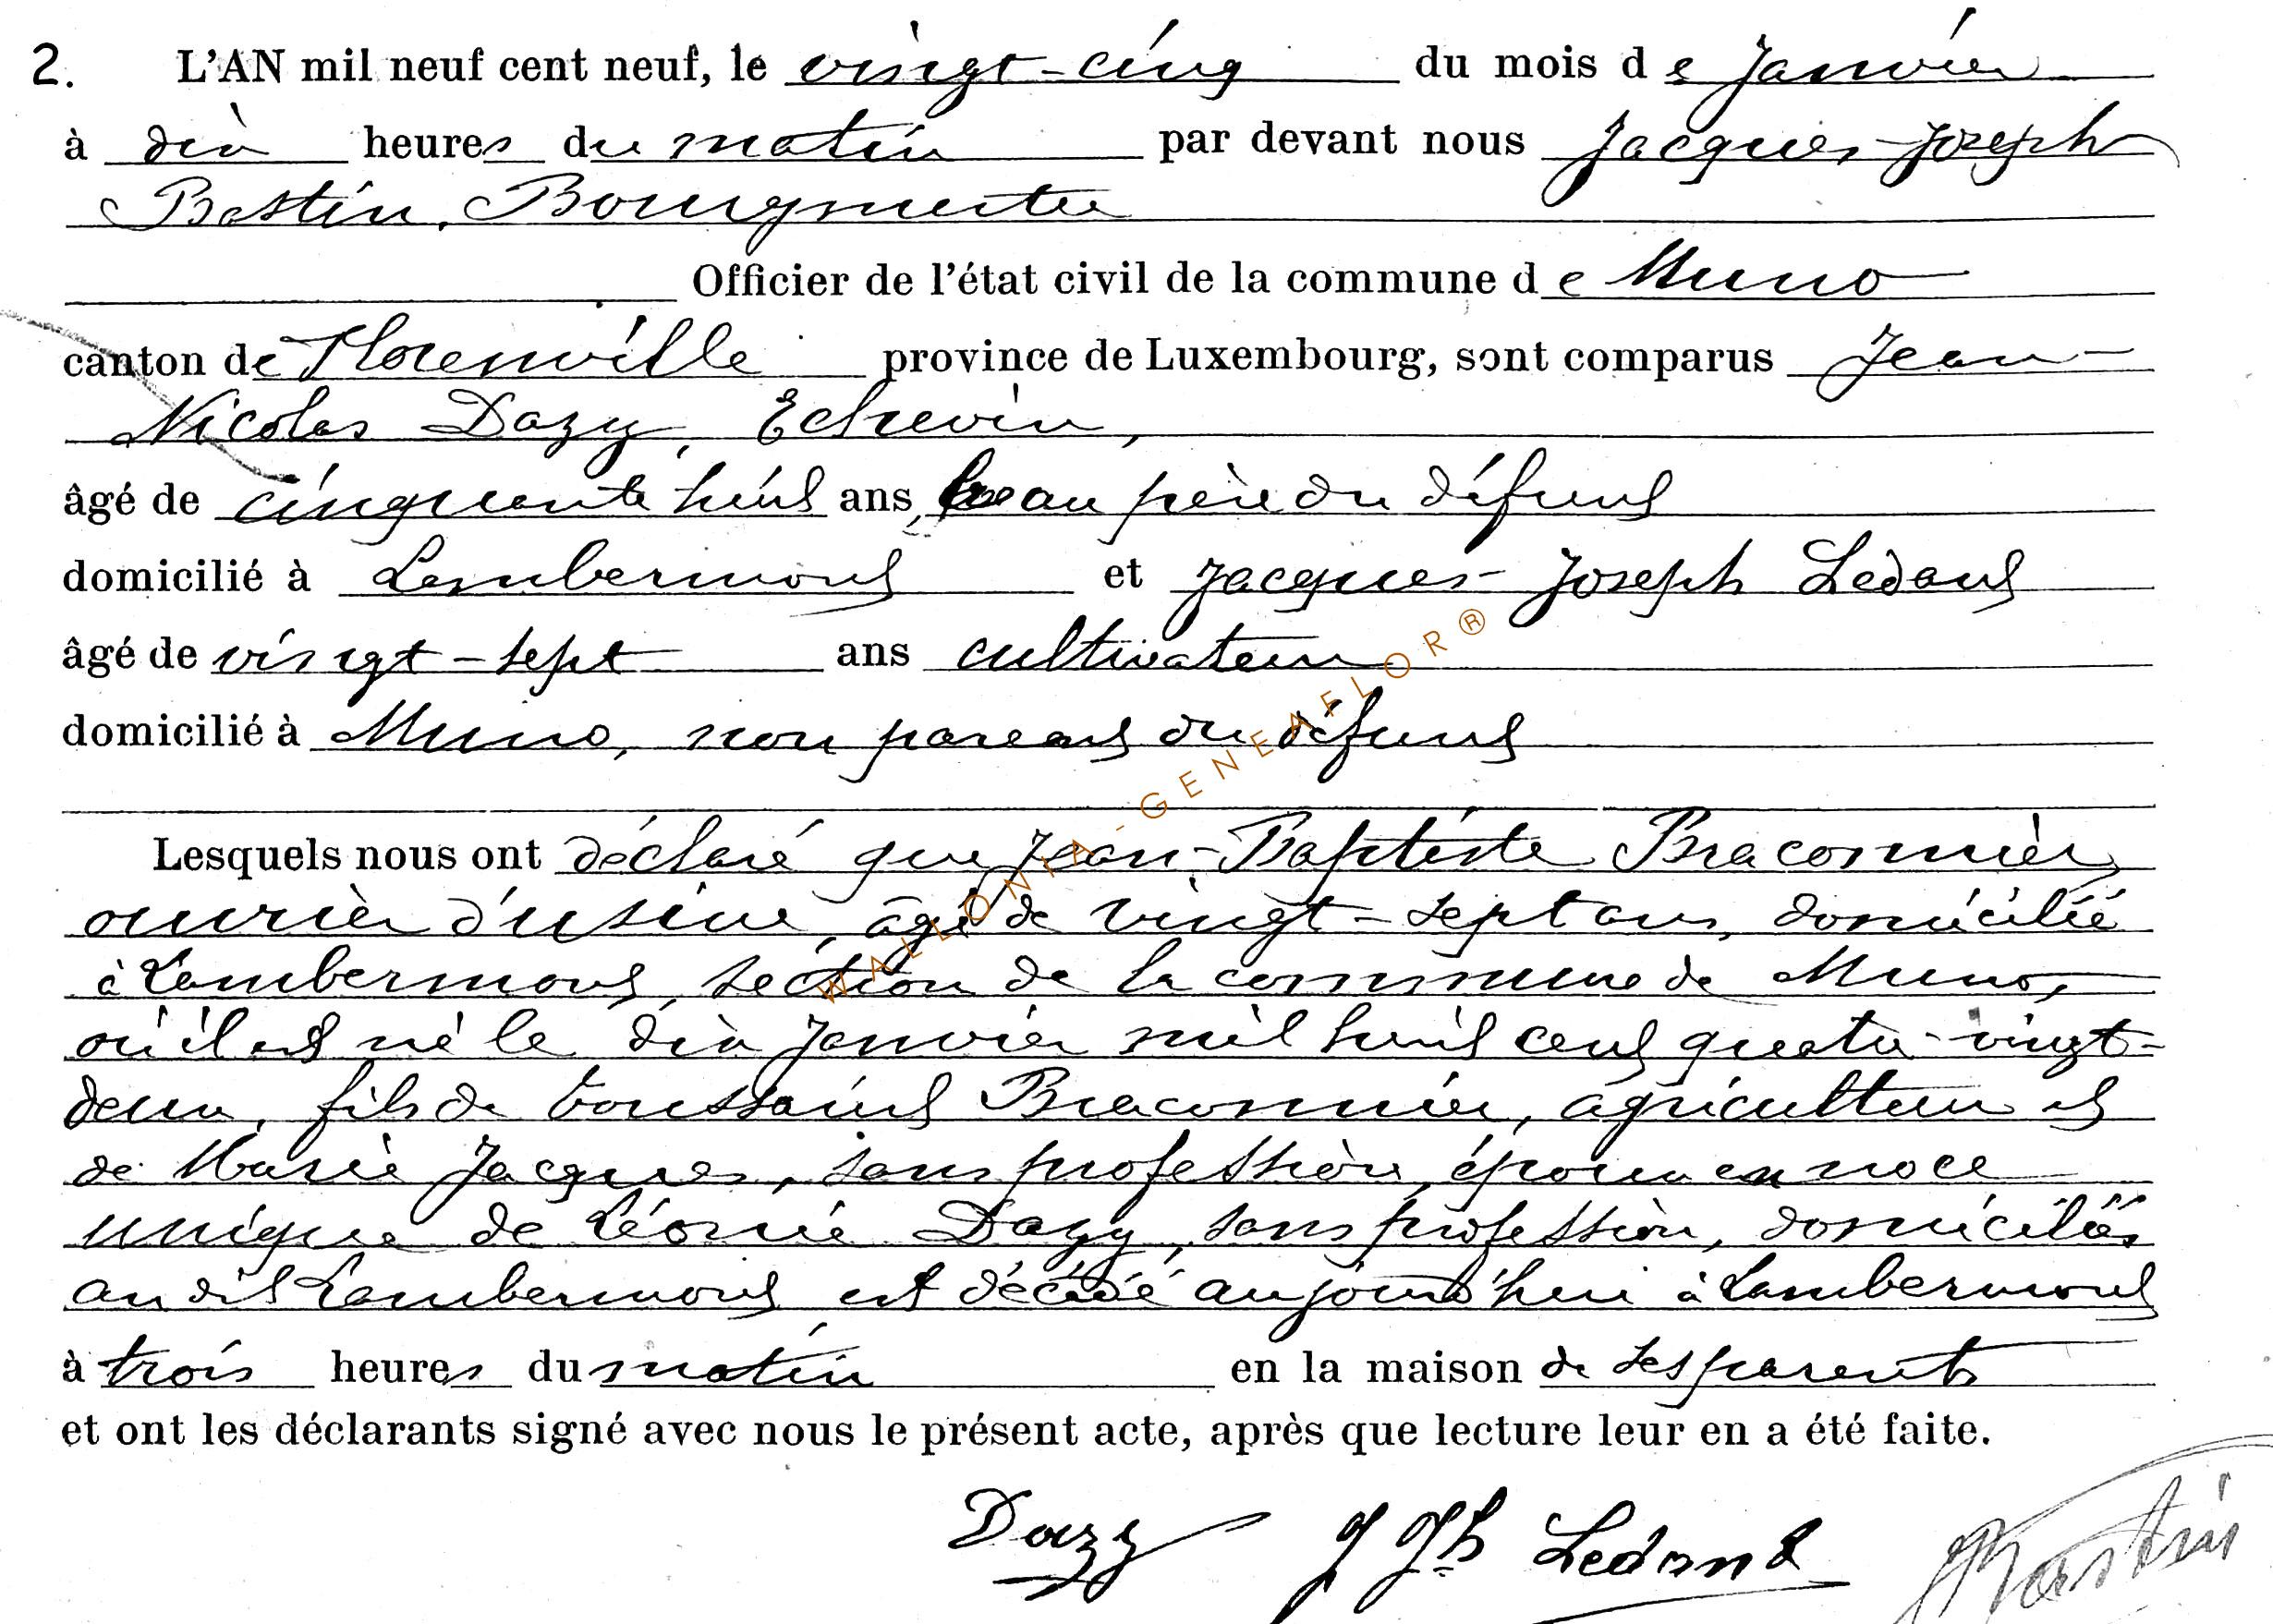 2. L'AN mil neuf cent neuf, le vingt-cinq du mois de Janvier
à dix heures du matin par devant nous Jacques-Joseph
Bastin, Bourgmestre
Officier de l'état civil de la commune de Muno
canton de Florenville province de Luxembourg, sont comparus Jean-
Nicolas Dazy, Echevin,
âgé de cinquante huit ans, beau père du défunt
domicilié à Lambermont et Jacques-Joseph Ledant
âgé de vingt-sept ans cultivateur
domicilié à Muno, non parent du défunt
Lesquels nous ont déclaré que Jean-Baptiste Braconnier
ouvrier d'usine, âgé de vingt-sept ans, domicilié
à Lambermont, section de la commune de Muno,
où il est né le dix Janvier mil huit cent quatre-vingt-
deux, fils de Toussaint Braconnier, agriculteur et
de Marie Jacques, sans profession, époux en noce
unique de Léonie Dazy, sans profession, domiciliés
au dit Lambermont est décédé aujourd'hui à Lambermont
à trois heures du matin en la maison de ses parents
et ont les déclarants signé avec nous le présent acte, après que lecture leur en a été faite.
Dazy J Jh Ledant Bastin
WALLONIA-GENEAFLOR®